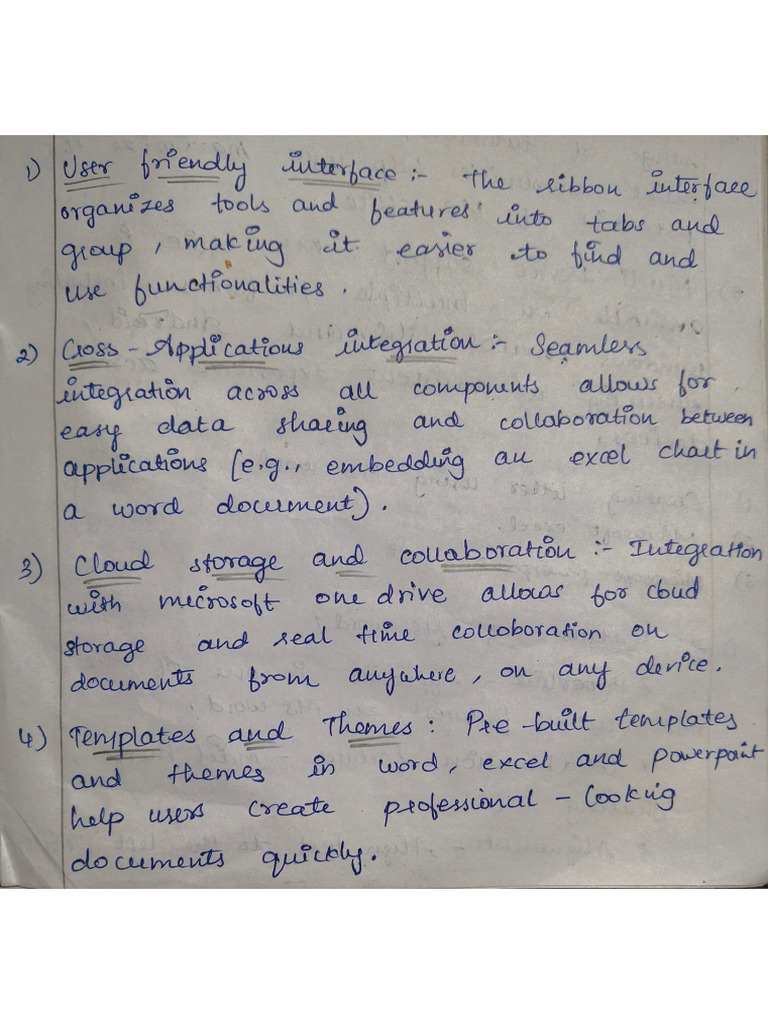 1) User friendly interface :- The ribbon interface
organizes tools and features into tabs and
group, making it easier to find and
use functionalities.
2) Cross-Applications integration :- Seamless
integration across all components allows for
easy data sharing and collaboration between
applications (e.g., embedding an excel chart in
a word document).
3) Cloud storage and collaboration :- Integration
with microsoft one drive allows for cloud
storage and real time colloboration on
documents from anywhere, on any device.
4) Templates and Themes : Pre-built templates
and themes in word, excel and powerpoint
help users create professional - looking
documents quickly.